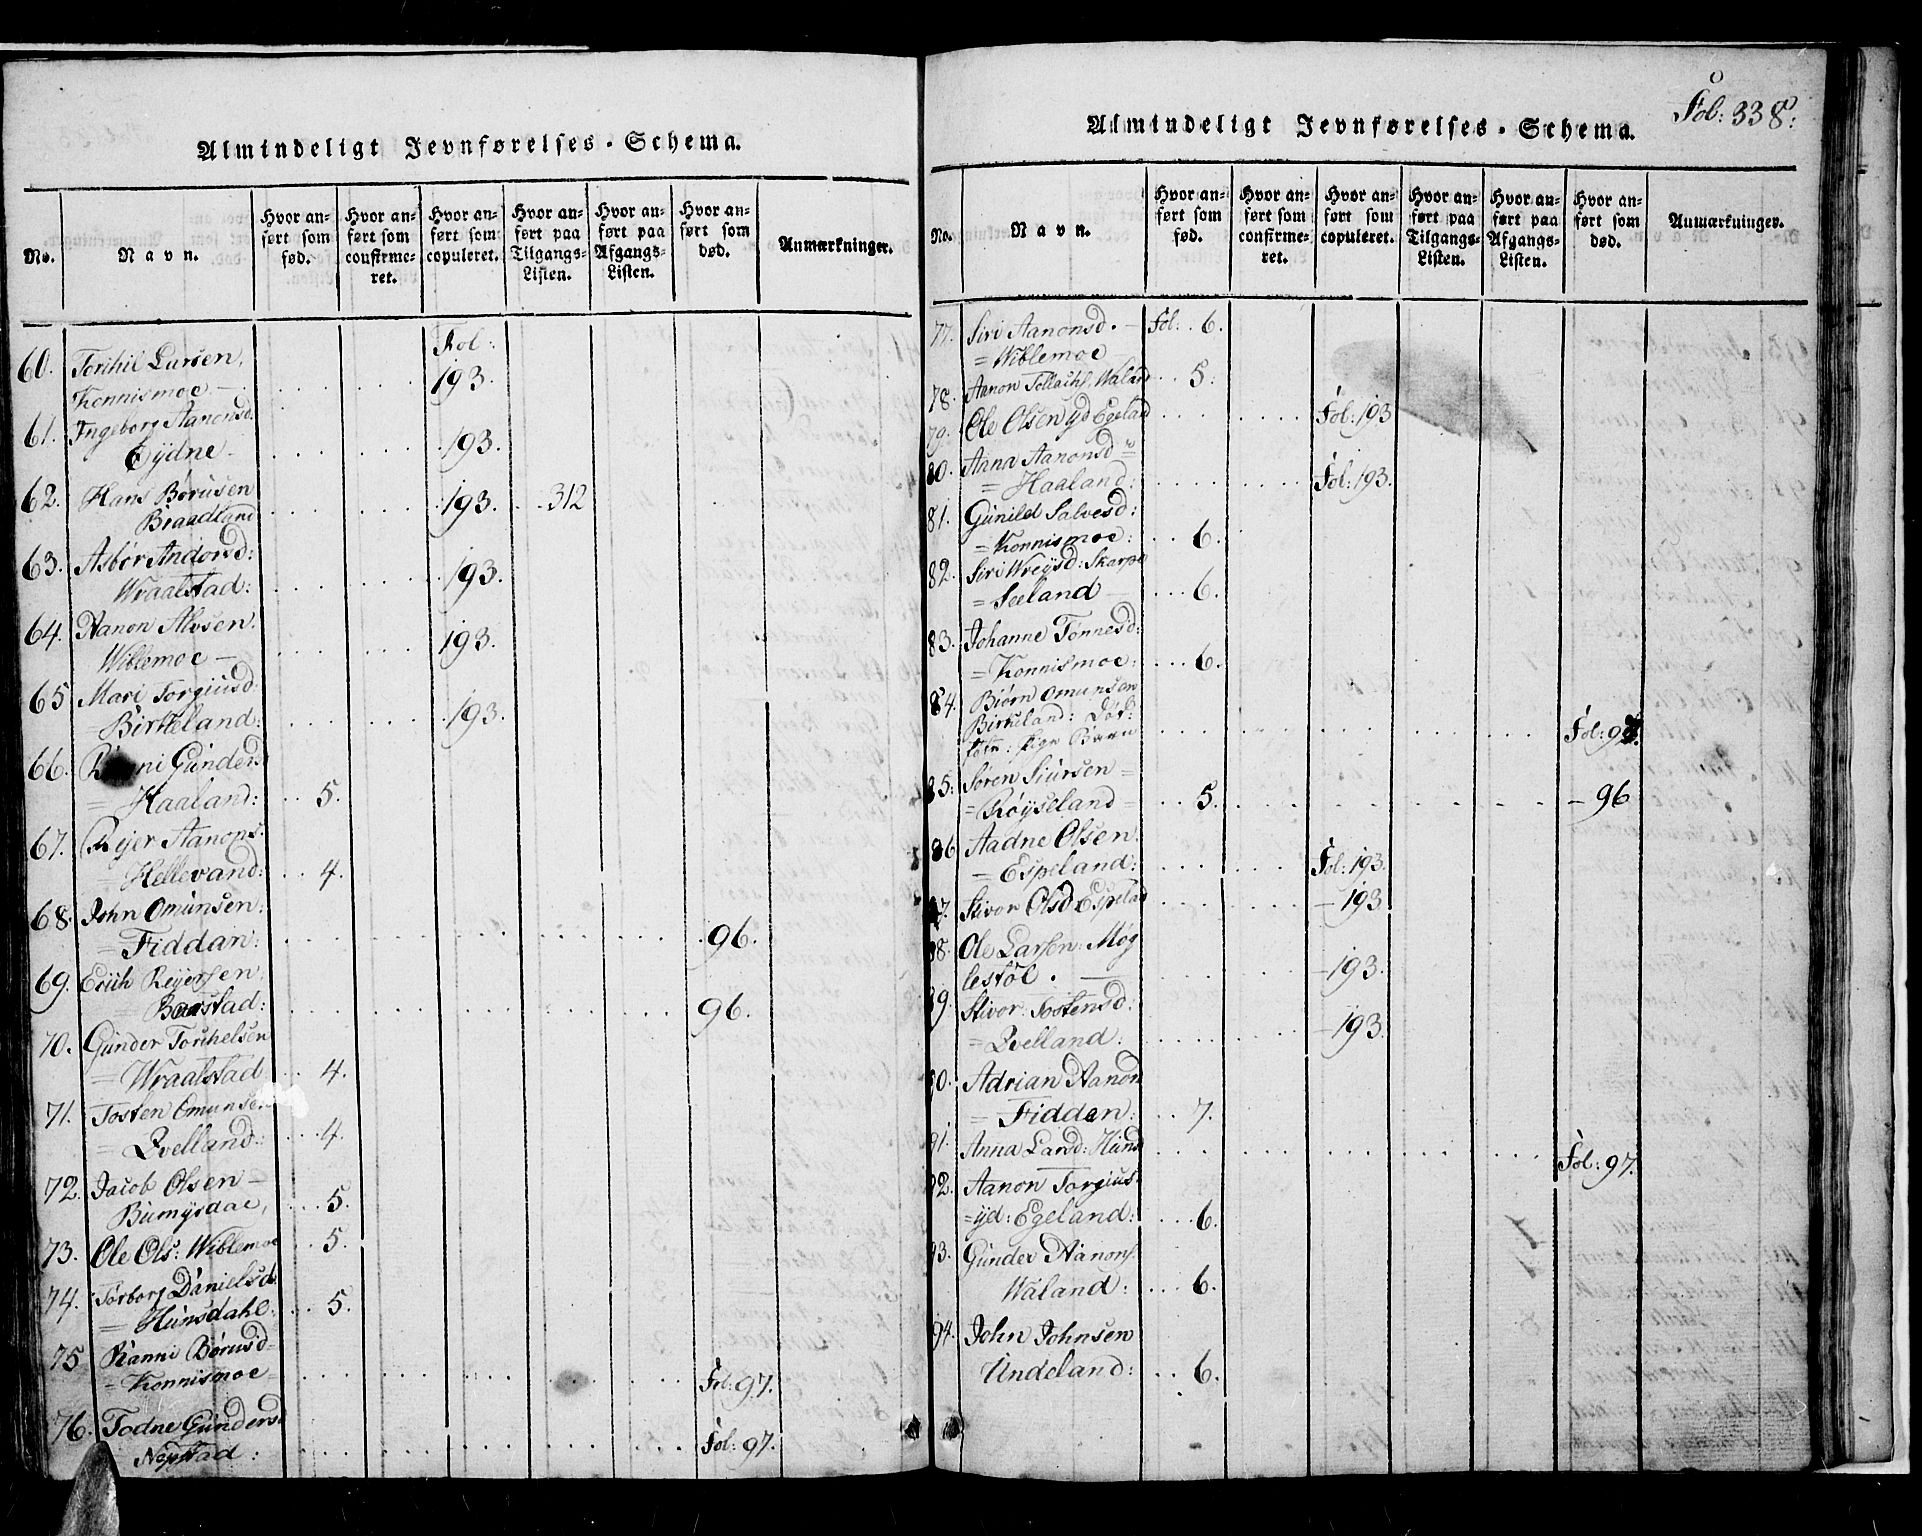 Almindeligt Jevnførelses-Schema.
No.
Navn.
Hvor anført som fød.
Hvor anført som confirmeret.
Hvor anført som copuleret.
Hvor anført paa Tilgangs-Listen.
Hvor anført paa Afgangs-Listen.
Hvor anført som død.
Anmærkninger.
60. Torkil Larsen,
Konnismoe Fol: 193.
61. Ingeborg Aanonsd:
Eydne 193.
62. Hans Børusen
Braadland 193. 312
63. Asbør Andorsd:
Wraalstad: 193.
64. Aanon Alvsen.
Wiblemoe 193.
65 Mari Torgiusd:
Birkeland: 193.
66. Gunders
= Haaland: 5.
67. Rejer Aanons:
= Hellevand: 4.
68. John Omunsen:
= Fiddan: 96.
69. Erich Reijersen,
= Baastad: 96.
70. Gunder Torkelsen
= Wraalstad 4.
71. Tosten Omunsen
= Qvelland: 4.
72. Jacob Olsen
Bumysdae, 5.
73. Ole Ols: Wiblemoe 5.
74. Torborg Danielsd:
= Hunsdahl: 5.
75 Ranni Børusd=
= Konnismoe Fol: 97.
76. Todne Gunders
Nøpstad: Fol: 97.
Fol: 338:
Almindeligt Jevnførelses-Schema.
No.
Navn.
Hvor anført som fød.
Hvor anført som confirmeret.
Hvor anført som copuleret.
Hvor anført paa Tilgangs-Listen.
Hvor anført paa Afgangs-Listen.
Hvor anført som død.
Anmærkninger.
77. Siri Aanonsd. Fol: 6.
= Wiblemoe
78. Aanon Tollachs Waland 5.
79. Ole Olsen yd Egeland Fol: 193
80. Anna Aanonsd=
= Haaland: Fol: 193.
81. Gunild Salvesd:
= Konnismoe: 6.
82. Siri Wreysd: Skarpe
= Seeland 6.
83. Johanne Tønnesd:
= Konnismoe: 6.
84. Biørn Omunsen
Birkeland: Fol: 97.
85. Søren Siursen=
= Røyseland= 5. 96
86 Aadne Olsen.
= Espeland: Fol: 193.
87. Stivor Olsd Espelad 193
88. Ole Larsen: Møg
lestøl. 193.
89. Stivor Tostensd:
= Qvelland: 193.
90. Adrian Aanon
= Fiddan: 7.
91. Anna Larsd: Huns Fol: 97.
92. Aanon Torgius.
= yd: Egeland: 6.
93. Gunder Aanons.
Waland: 6.
94. John Johnsen
Undeland: 6.